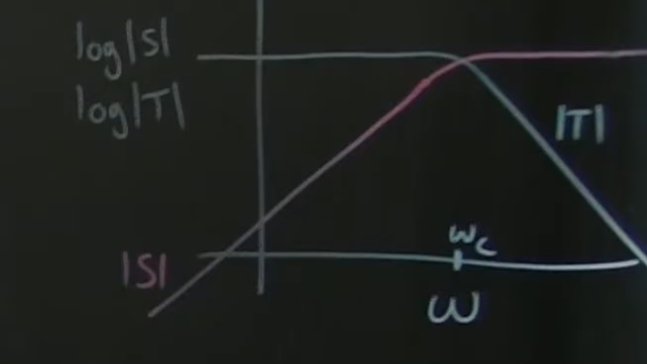 log|S|
log|T|
|T|
|S|
ω_c
ω